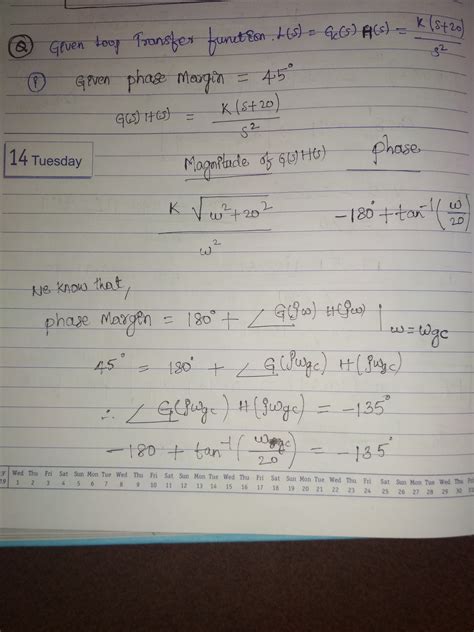 Q Given Loop Transfer function. L(s) = Gc(s) H(s) = K(s+20)/s²
i Given phase Margin = 45°
G(s) H(s) = K(s+20)/s²
14 Tuesday
Magnitude of G(s) H(s) phase
K √ω²+20² / ω² -180° + tan⁻¹(ω/20)
We know that,
phase Margin = 180° + ∠G(jω) H(jω) | ω = ωgc
45° = 180° + ∠G(jωgc) H(jωgc)
∴ ∠G(jωgc) H(jωgc) = -135°
-180 + tan⁻¹(ωgc/20) = -135°
Wed Thu Fri Sat Sun Mon Tue Wed Thu Fri Sat Sun Mon Tue Wed Thu Fri Sat Sun Mon Tue Wed Thu Fri Sat Sun Mon Tue Wed Thu
1 2 3 4 5 6 7 8 9 10 11 12 13 14 15 16 17 18 19 20 21 22 23 24 25 26 27 28 29 30